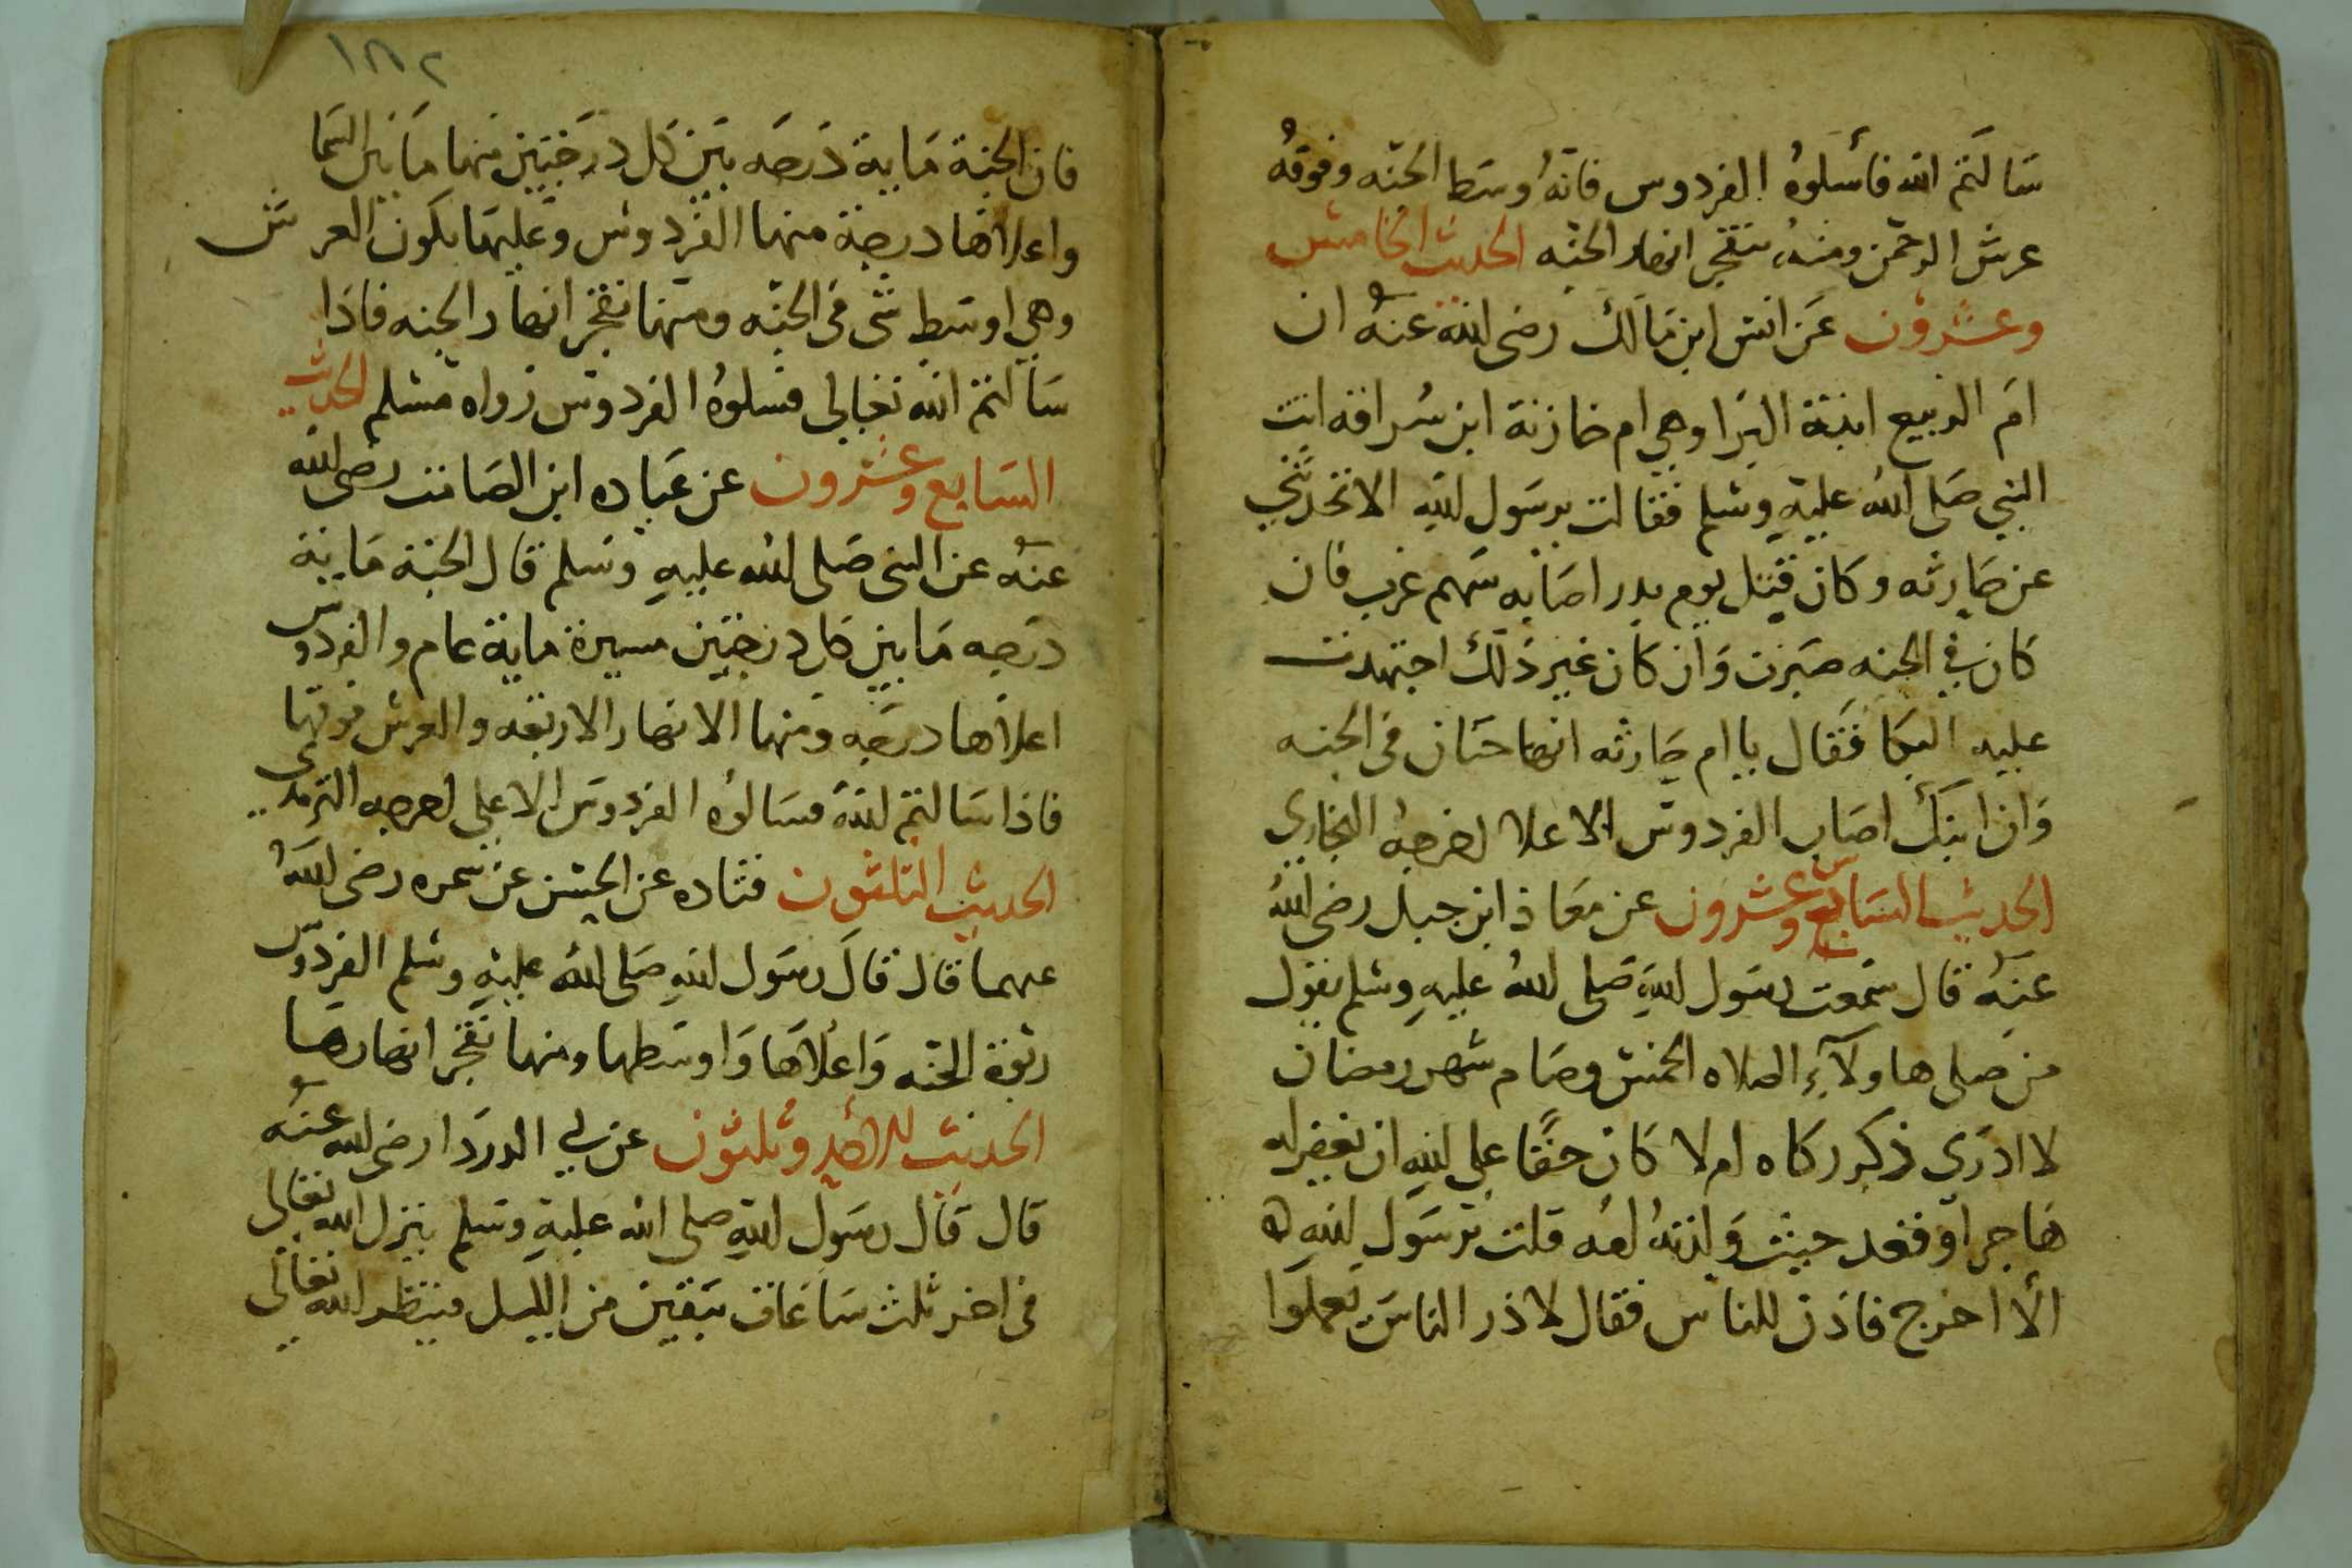 سَالتم الله فأسلوهُ الفردوس فانّهُ اوسَط الجنّه وفوقهُ
عرش الرحمن ومنهُ تتفجر انهار الجنّه الحديث الخامس
وعشرون عَن انس ابن مَالك رضى الله عنهُ ان
امَ الربيع ابنة البَرا وهي ام خارثة ابن سُراقه اتت
النبي صَلى اللهُ عليهِ وسلم فقالت يرسَول اللهِ الا تحدثني
عن حَارثه وكان قيتل يوم بدر اصَابه سَهم غرب فان
كان في الجنه صبَرت وَان كان غير ذلك اجتهدت
عليه البكا فقال يا ام حَارثه انها جنان فى الجنه
وَان ابنَك اصَاب الفردوس الاعلا اخرجهُ البخاري
الحديث السَابع وعشرون عن معَاذ ابن جبل رضى اللهُ
عنهُ قال سَمعت رسَول اللهِ صَلى اللهُ عليهِ وسلم يقول
من صلى هاولآءِ الصلاه الخمس وصَام شهر رمضان
لا ادرَي ذكر زكاه ام لا كان حقًا على اللهِ ان يغفر له
هَاجر او قعد حيث وَلدتهُ امه قلت يرسَول اللهِ
الّا اخرج فاذن للناس فقال لا ذر الناسَ يعملوا
١٨٢
فان الجنة مَاية دَرجَه بَين كل دَرَجتين منها مَا بَين السَما
واعلاها درجة منها الفردوس وعليهَا يكون العرش
وهي اوسَط شى فى الجنّه ومنهَا تفجر انهار الجنه فاذا
سَالتم الله تعَالى فسلوهُ الفردوس رواه مسْلم الحديث
السَابع وعشرون عن عبَاده ابن الصَامت رضى الله
عنهُ عن النبى صَلى الله عليهِ وسَلم قال الجنة مَاية
درَجه مَا بين كل درجتين مسيرة ماية عام والفردوس
اعلاها درجَه ومنها الانهار الاربعه والعرش فوقها
فاذا سَالتم اللهَ فسَالوُه الفردوسَ الاعلى اخرجه الترمدى
الحديث الثلثون قتاده عن الحسن عن سمره رضى اللهُ
عنهما قال قالَ رسَول اللهِ صَلى اللهُ عليهِ وسلم الفردوس
ربوة الجنّه وَاعلاهَا وَاوسَطها ومنها تفَجر انهارها
الحديث الاحد وثلثون عن ابي الدردَا رضى الله عنهُ
قال قال رسَول اللهِ صلى الله عليهِ وسَلم ينزل الله تعَالى
فى اخر ثلث سَاعَات يبَقين من الليل فينظر الله تعَالى